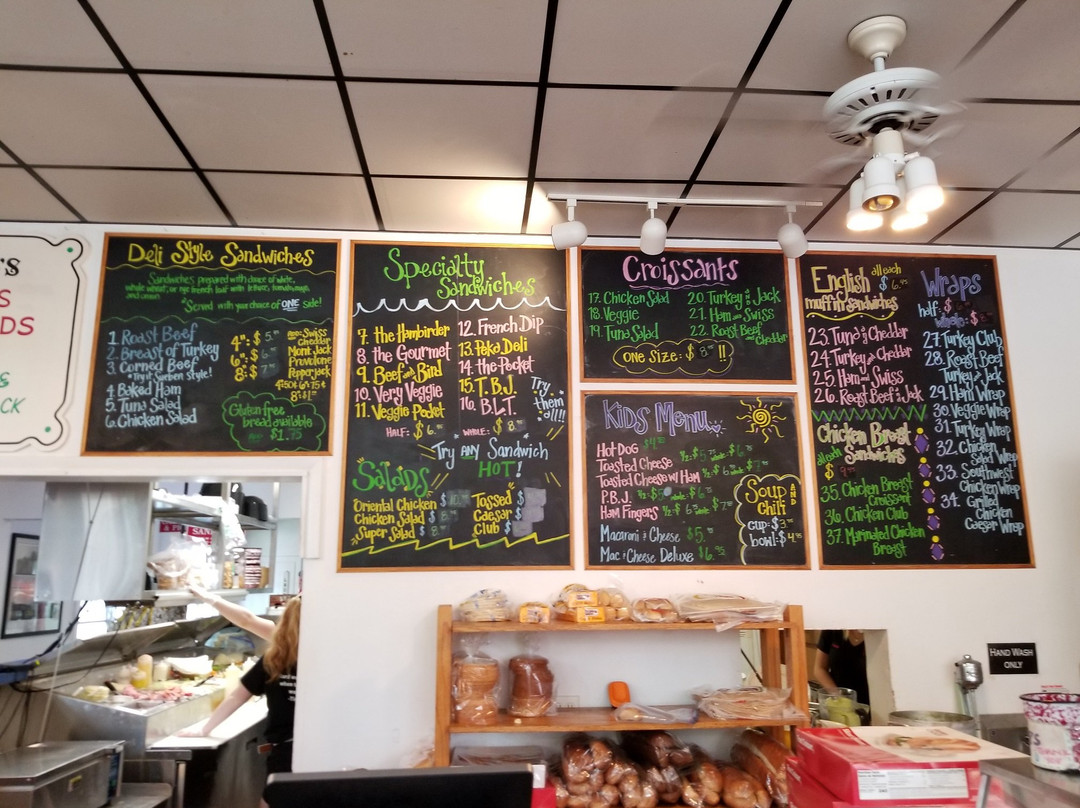 Deli Style Sandwiches
Sandwiches prepared with choice of white,
whole wheat, or rye french loaf with lettuce, tomato, mayo,
and onion.
*Served with your choice of ONE side!
1. Roast Beef
2. Breast of Turkey
3. Corned Beef
4. Baked Ham
5. Tuna Salad
6. Chicken Salad
4": $
6": $
8": $
Swiss
Cheddar
Mont. Jack
Provolone
Pepperjack
Gluten-free
bread available
$1.75
Specialty
Sandwiches
7. the Hambirder
8. the Gourmet
9. Beef and Bird
10. Very Veggie
11. Veggie Pocket
12. French Dip
13. Poko Deli
14. the Pocket
15. T.B.J.
16. B.L.T.
Try
them
all!!
HALF: $ 6.
WHOLE: $ 8.
Try ANY Sandwich
HOT!
Salads
Oriental Chicken $
Chicken Salad $
Super Salad $
Tossed $
Caesar $
Club $
Croissants
17. Chicken Salad
18. Veggie
19. Tuna Salad
20. Turkey & Jack
21. Ham and Swiss
22. Roast Beef
& Cheddar
One Size: $ 8 !!
Kids Menu
Hot Dog
Toasted Cheese
Toasted Cheese w/ Ham
P.B.J.
Ham Fingers
Macaroni & Cheese $5.
Mac & Cheese Deluxe $6.
Soup AND
Chili
cup: $3.
bowl: $4.
English all each
muffin sandwiches $ 6.
23. Tuna & Cheddar
24. Turkey and Cheddar
25. Ham and Swiss
26. Roast Beef & Jack
Chicken Breast
Sandwiches
all each
$ 9.
35. Chicken Breast
Croissant
36. Chicken Club
37. Marinated Chicken
Breast
Wraps
half: $
whole: $
27. Turkey Club
28. Roast Beef
Turkey & Jack
29. Ham Wrap
30. Veggie Wrap
31. Turkey Wrap
32. Chicken
Salad Wrap
33. Southwest
Chicken Wrap
34. Grilled
Chicken
Caesar Wrap
HAND WASH
ONLY